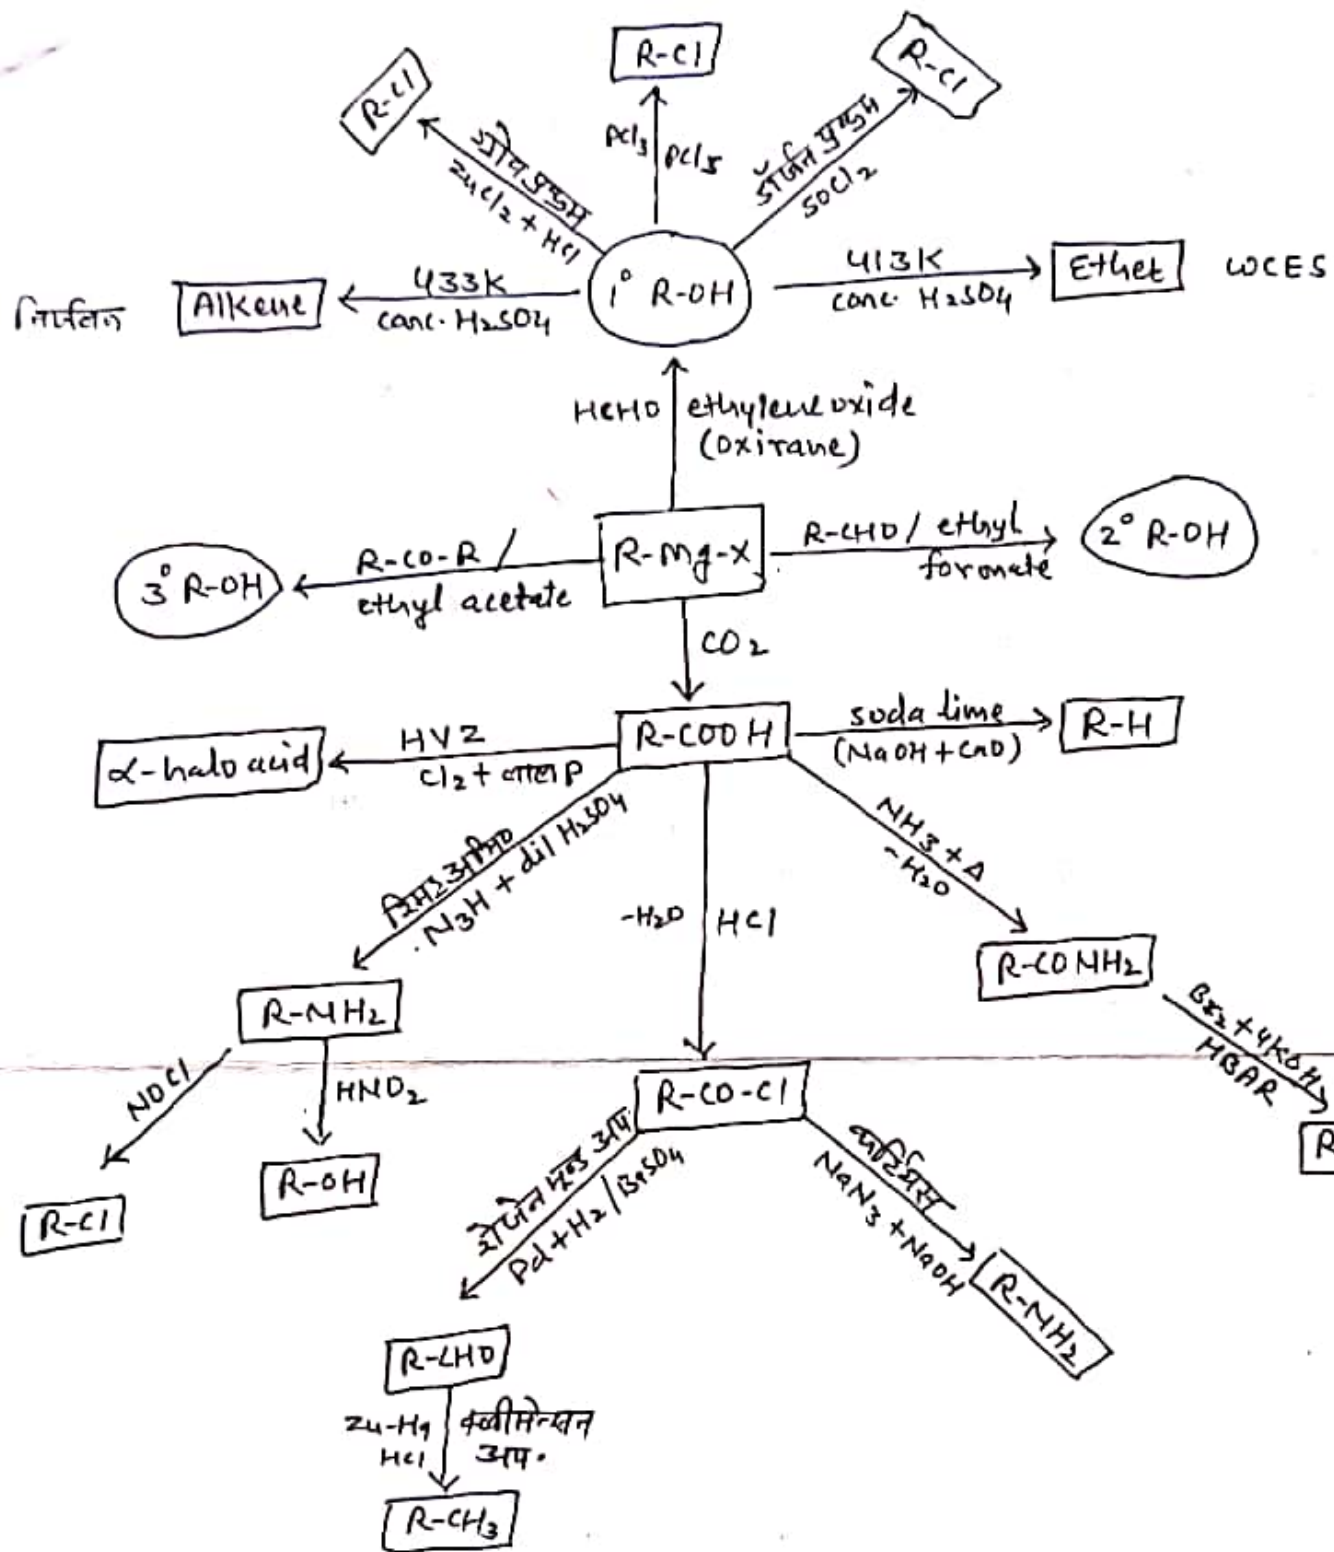 R-Cl
R-Cl
R-Cl
ग्रोव प्रक्रम
ZnCl2 + HCl
PCl3
PCl5
डॉर्जन प्रक्रम
SOCl2
Alkene
433K
conc. H2SO4
1° R-OH
413K
conc. H2SO4
Ether
WCES
HCHO
ethylene oxide
(oxirane)
3° R-OH
R-CO-R /
ethyl acetate
R-Mg-X
R-CHO / ethyl
formate
2° R-OH
CO2
α-halo acid
HVZ
Cl2 + लाल P
R-COOH
soda lime
(NaOH + CaO)
R-H
N3H + dil H2SO4
-H2O
HCl
NH3 + Δ
-H2O
R-NH2
R-CONH2
NOCl
HNO2
R-CO-Cl
Br2 + 4KOH
HBAR
R
R-Cl
R-OH
Pd + H2 / BaSO4
कर्टियस
NaN3 + NaOH
R-NH2
R-CHO
Zn-Hg
HCl
क्लीमेन्सन
अप.
R-CH3